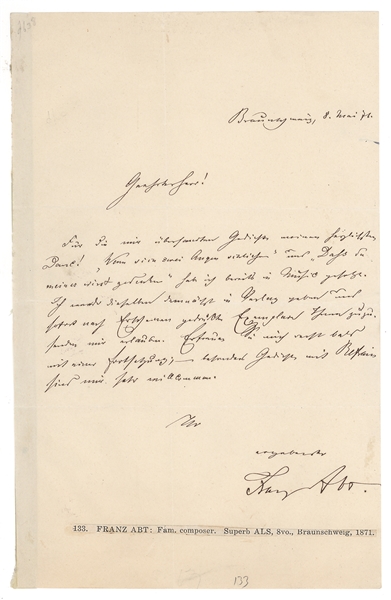 Braunschweig, 8. Mai 71.
Geehrter Herr!
Für die mir übersandten Gedichte meinen herzlichsten
Dank! "Wenn zwei Augen" und "Daß du
meiner wirst gedenken" hab ich bereits in Musik gesetzt.
Ich werde dieselben demnächst in Verlag geben und
sofort nach Erscheinen gedruckte Exemplare Ihnen zuzu-
senden mir erlauben. Erfreuen Sie mich recht bald
mit einer Fortsetzung, – besonders Gedichte mit Refrain
sind mir sehr willkommen.
Ihr
ergebenster
Franz Abt.
133. FRANZ ABT: Fam. composer. Superb ALS, 8vo., Braunschweig, 1871.
133